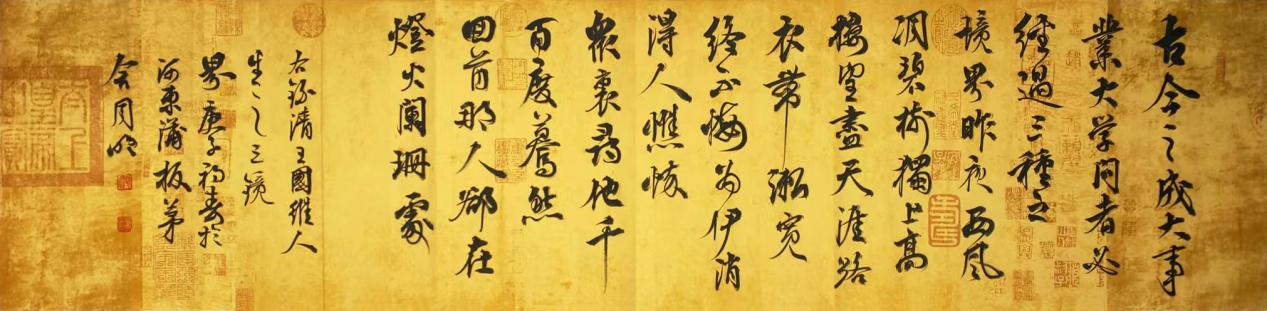 古今之成大事
業大学问者必
经過三種之
境界昨夜西风
凋碧樹獨上高
楼望盡天涯路
衣带渐宽
终不悔为伊消
得人憔悴
衆裏尋他千
百度蓦然
回首那人卻在
燈火闌珊處
右录清王國維人
生之三镜
界庚子初春於
河東蒲板茅
舍周明